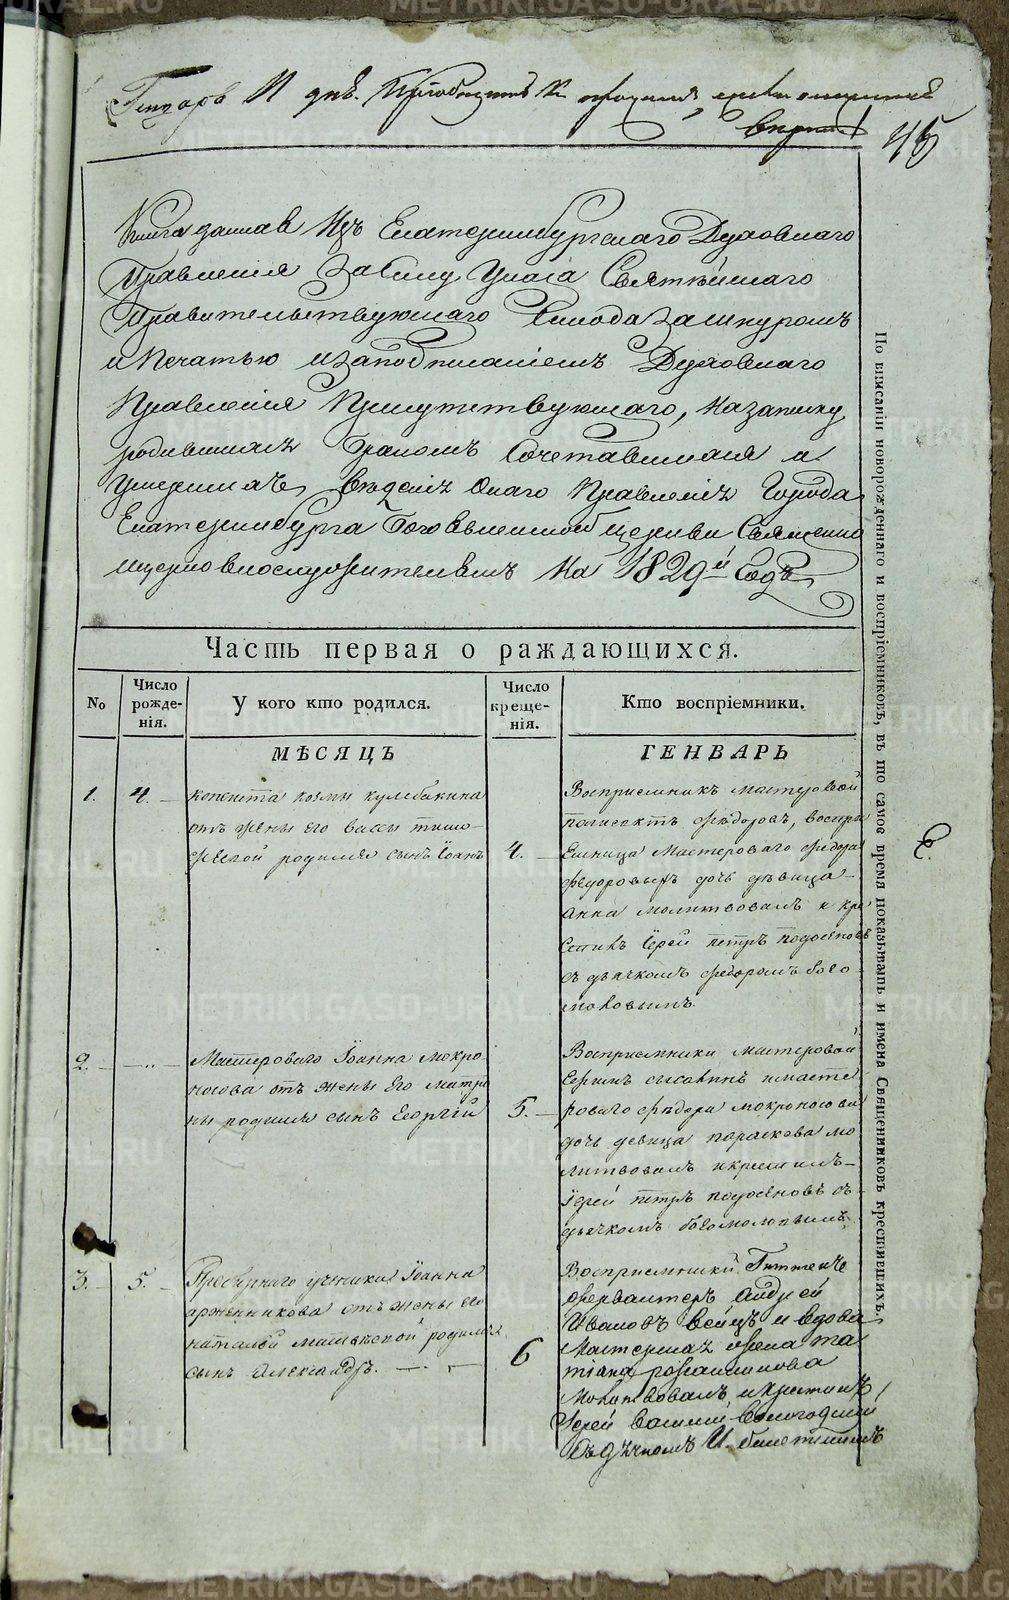 45
Книга данная Изъ Екатеринбургскаго Духовнаго
Правленія За силу Указа Святѣйшаго
Правительствующаго Синода За шнуромъ
и Печатью и заподписаніемъ Духовнаго
Правленія Присутствующаго, На записку
родившихся Бракомъ Сочетавшихся и
Умершихъ, Онаго Правленія Города
Екатеринбурга Богоявленской Церкви Священно
церковнослужителямъ На 1829й Годъ
Часть первая о раждающихся.
No
Число рожде-нія.
У кого кто родился.
Число креще-нія.
Кто воспріемники.
МѢСЯЦЪ
ГЕНВАРЬ
1. 4.
копеиста козмы кулебакина
отъ жены его вассы тимо-
ѳѣевой родился сынъ Іоанъ
4.
Восприемникъ мастеровой
ѳедоровъ, воспри
Емница мастероваго ѳедора
ѳедоровыхъ дочь дѣвица
анна молитвовалъ и кре
стилъ Іерей петръ подосеновъ
съ дьячкомъ ѳедоромъ бого
моловымъ
2.
Мастероваго Іоанна мокро
носова отъ жены Его матро
ны родился сынъ Георгій
5.
Восприемники мастеровой
и масте
роваго ѳедора мокроносова
дочь девица параскева мо
литвовалъ и крестилъ
Іерей петръ подосеновъ съ
дьячкомъ богомоловымъ
3. 5.
ученика Іоанна
отъ жены его
натальи родился
сынъ александръ.
6
Восприемники Гиттенъ
ѳервалтеръ Андрей
Ивановъ и вдова
Мастерша та
тіана
Молитвовалъ и крестилъ
Іерей Василий
Съ дьячкомъ И.
По вписаніи новорожденнаго и воспріемниковъ, въ то самое время показывать и имена Священниковъ крестившихъ.
METRIKI.GASO-URAL.RU